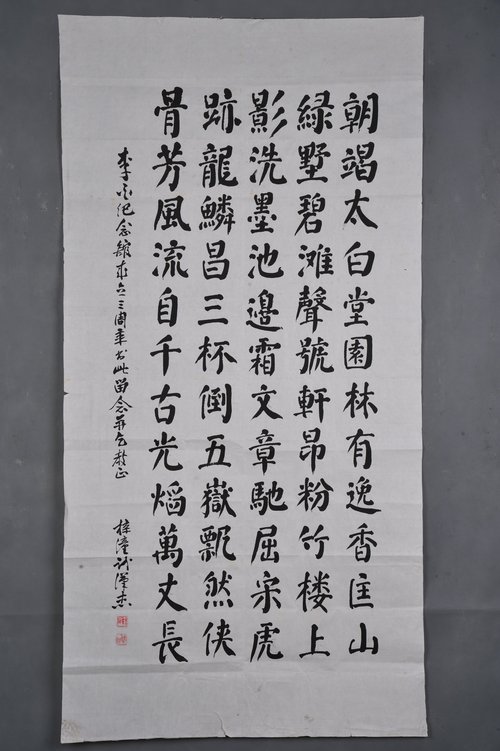 朝竭太白堂園林有逸香匡山
緑墅碧灘聲號軒昂粉竹楼上
影洗墨池邊霜文章馳屈宋虎
跡龍鱗昌三杯倒五嶽飄然俠
骨芳風流自千古光焰萬丈長
李白纪念館成立三周年书此留念并乞教正
梓潼